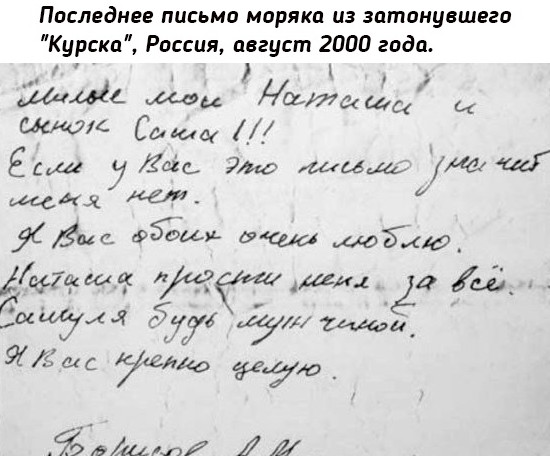 Последнее письмо моряка из затонувшего
"Курска", Россия, август 2000 года.
Милые мои Наташа и
сынок Саша!!!
Если у Вас это письмо значит
меня нет.
Я Вас обоих очень люблю.
Наташа прости меня за всё.
Сашуля будь мужчиной.
Я Вас крепко целую.
Борисов А.М